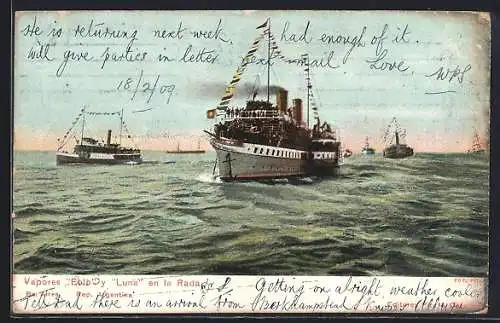 He is returning next week, had enough of it.
Will give parties in letter next mail Love, WPS
18/2/09
Vapores "Eolo" y "Luna" en la Rada
Bs. Aires. Rep. Argentina
P.S. Getting on alright, weather cooler
I understand there is an arrival from Berkhamstead
Editores